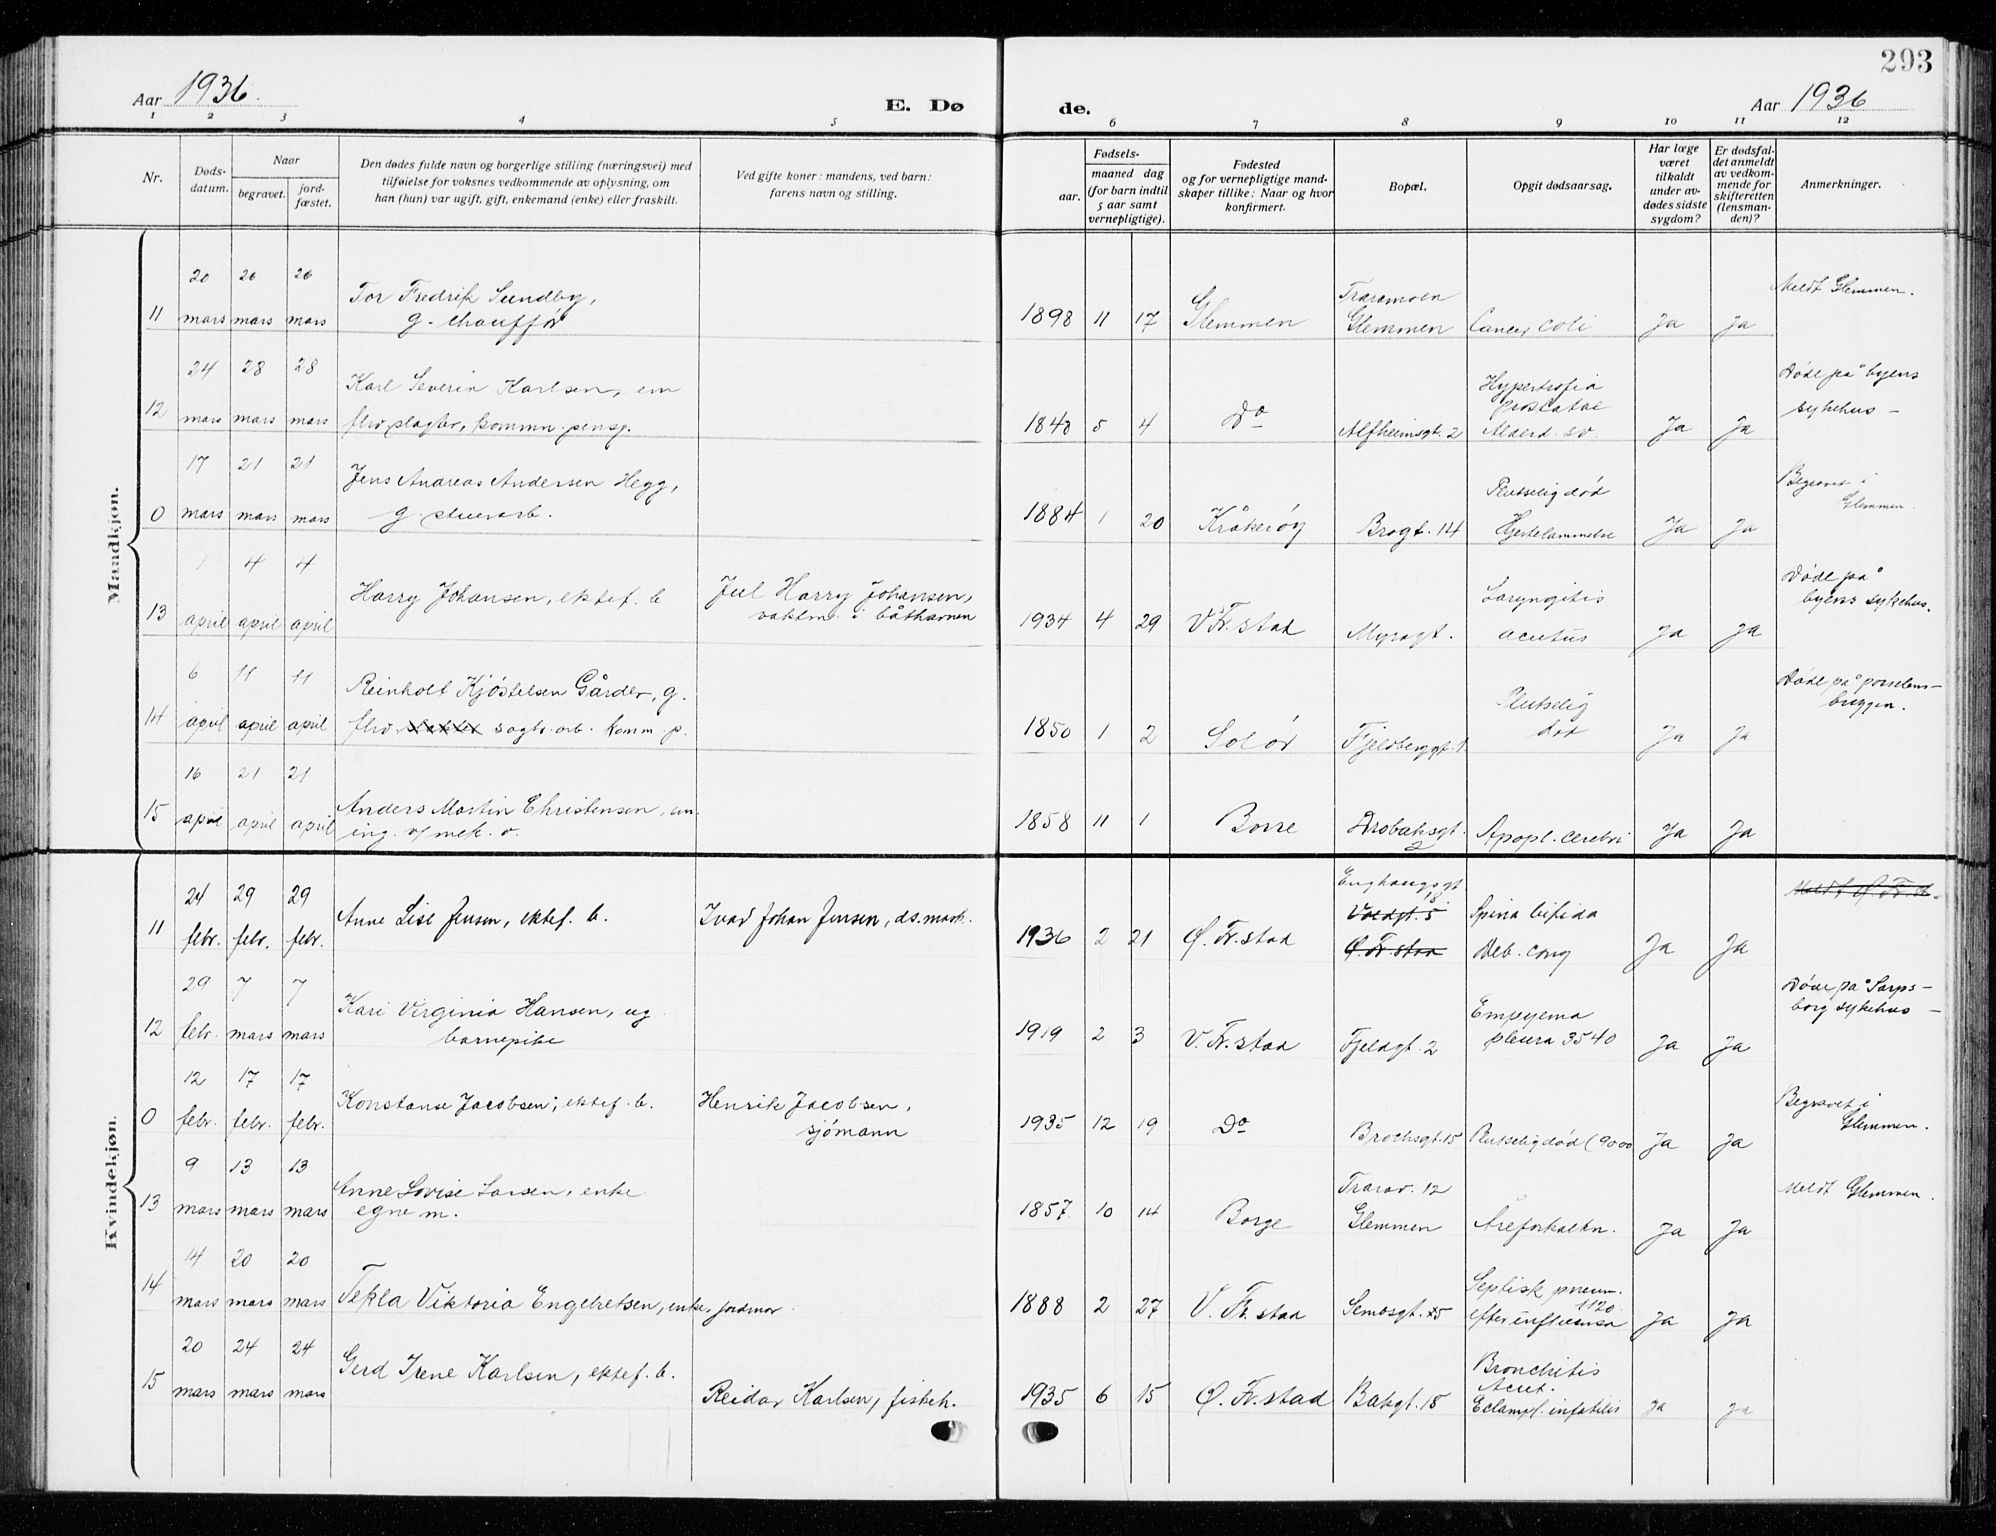 293
Aar 1936.
E. Dø de.
Aar 1936
1 2 3 4 5 6 7 8 9 10 11 12
Nr.
Døds-
datum.
Naar
begravet.
jord-
fæstet.
Den dødes fulde navn og borgerlige stilling (næringsvei) med
tilføielse for voksnes vedkommende av oplysning, om
han (hun) var ugift, gift, enkemand (enke) eller fraskilt.
Ved gifte koner: mandens, ved barn:
farens navn og stilling.
Fødsels-
aar.
maaned dag
(for barn indtil
5 aar samt
vernepligtige).
Fødested
og for vernepligtige mand-
skaper tillike: Naar og hvor
konfirmert.
Bopæl.
Opgit dødsaarsag.
Har læge
været
tilkaldt
under av-
dødes sidste
sygdom?
Er dødsfal-
det anmeldt
av vedkom-
mende for
skifteretten
(lensman-
den)?
Anmerkninger.
Mandkjøn.
20 26 26 Tor Fredrik Sundby, Traramoen Meldt Glemmen.
11 mars mars mars g. chauffør 1898 11 17 Glemmen Glemmen Cancer coli Ja Ja
24 28 28 Karl Severin Karlsen, em Hypertrofia Døde på byens
prostatae sykehus -
12 mars mars mars fhv. slagter, komm. pensj. 1848 5 4 Do Alfheimsgt. 2 Alderd. sv. Ja Ja
17 21 21 Jens Andreas Andersen Hegg, Plutselig død Begravet i
0 mars mars mars g. stuerarb. 1884 1 20 Kråkerøy Brogt. 14 Hjertelammelse Ja Ja Glemmen.
1 4 4 Harry Johansen, ektef. b Jul Harry Johansen, Laryngitis Døde på
13 april april april vaktm. i båthavnen 1934 4 29 V Fr.stad Myragt. acutus Ja Ja byens sykehus.
6 11 11 Reinholt Kjøstelsen Gårder, g. Plutselig Døde på porselens-
14 april april april fhv. sagbr. arb. komm. p. 1850 1 2 Solør Fjeldberggt. 1 død Ja Ja bryggen.
16 21 21
15 april april april Anders Martin Christensen, em 1858 11 1 Borre Drøbaksgt. Apopl. cerebri Ja Ja
ing. v/ mek. v. 2
Kvindekjøn.
24 29 29 Enghaugsgt
18
Anne Lise Jensen, ektef. b. Ivar Johan Jensen, ds. mask. Voldgt. 5 Spina bifida Meldt Ø Fr.st.
11 febr. febr. febr. 1936 2 21 Ø. Fr. stad Ø. Fr. stad Deb. cong Ja Ja
29 7 7 Kari Virginia Hansen, ug Empyema Døde på Sarps-
12 febr. mars mars barnepike 1919 2 3 V. Fr. stad Fjeldgt. 2 pleura 3540 Ja Ja borg sykehus -
12 17 17 Konstanse Jacobsen, ektef. b. Henrik Jacobsen, Begravet i
0 febr. febr. febr. sjømann 1935 12 19 Do Brochsgt. 15 Plutselig død (9000 Ja Ja Glemmen.
9 13 13 Anne Lovise Larsen, enke Trarav. 12 Meldt Glemmen.
13 mars mars mars egne m. 1857 10 14 Borge Glemmen Åreforkalkn. Ja Ja
14 20 20 Septisk pneum.
1120
14 mars mars mars Tekla Viktoria Engebretsen, enke, jordmor. 1888 2 27 V. Fr. stad efter influensa Ja Ja
20 24 24 Gerd Irene Karlsen, ektef. b. Bronchitis
Acut.
15 mars mars mars Reidar Karlsen, fiskeh. 1935 6 15 Ø. Fr. stad 18 Eclampf. infatilis Ja Ja